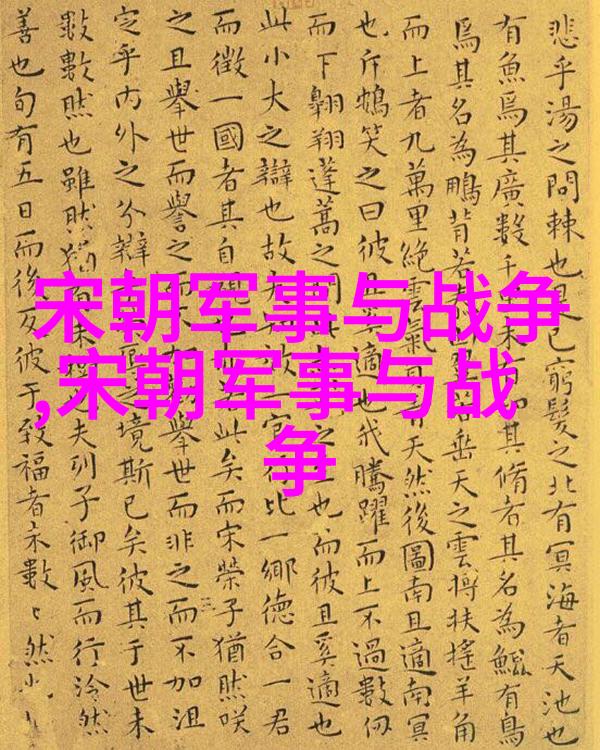 宋朝军事与战争
,宋朝军事与战
争
悲乎湯之問棘也是已窮髮之北有冥海者天池也
有魚焉其廣數千里未有知其脩者其名為鯤有鳥
焉其名為鵬背若垂天之雲摶扶搖羊角
而上者九萬里絕雲氣天然後圖南且適南冥
也斥鴳笑之曰彼且奚適也我騰躍而上不過數仞
而下翱翔蓬蒿之間之至也而彼且奚適也
此小大之辯也故夫一官行比一鄉德合一君
而徵一國者其自視此矣而宋榮子猶然咲
之且舉世而譽之而不加舉世而非之而不加沮
定乎內外之分辯乎之境斯已矣彼其于世未
數數然也雖然猶有未也夫列子御風而行泠然
善也旬有五日而後反彼于致福者未數〻然也